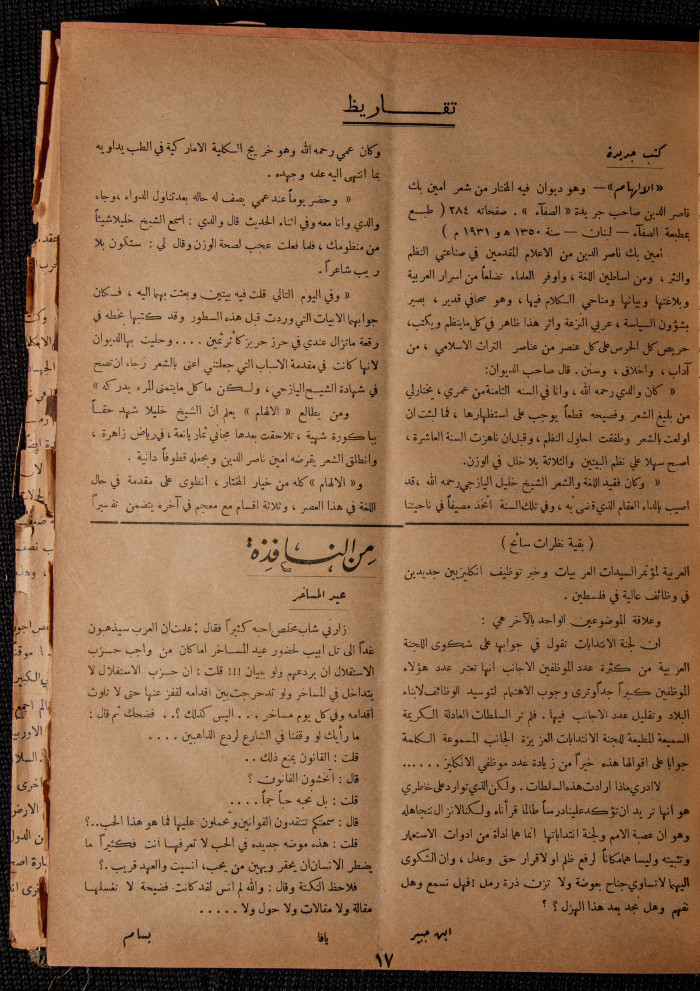 تقـــاريظ
كتب جديدة
« الالهام » — وهو ديوان فيه المختار من شعر امين بك
ناصر الدين صاحب جريدة « الصفآء » . صفحاته ٢٨٤ ( طبع
بمطبعة الصفآء — لبنان — سنة ١٣٥٠ هـ و ١٩٣١ م )
أمين بك ناصر الدين من الاعلام المقدمين في صناعتي النظم
والنثر ، ومن اساطين اللغة ، واوفر العلماء تضلعاً من اسرار العربية
وبلاغتها وبيانها ومناحي الكلام فيها ، وهو صحافي قدير ، بصير
بشؤون السياسة ، عربي النزعة واثر هذا ظاهر في كل ماينظم ويكتب ،
حريص كل الحرص على كل عنصر من عناصر التراث الاسلامي ، من
آداب ، واخلاق ، وسنن . قال صاحب الديوان :
« كان والدي رحمه الله ، وانا في السنه الثامنة من عمري ، يختارلي
من بليغ الشعر وفصيحه قطعاً يوجب علي استظهارها ، فما لبثت ان
اولعت بالشعر وطفقت احاول النظم ، وقبل ان ناهزت السنة العاشرة ،
اصبح سهلا علي نظم البيتين والثلاثة بلا خلل في الوزن .
« وكان فقيد اللغة والشعر الشيخ خليل اليازجي رحمه الله ، قد
اصيب بالداء العقام الذي قضى به ، وفي تلك السنة اتخذ مصيفاً في ناحيتنا
وكان عمي رحمه الله وهو خريج الكلية الاماركية في الطب يداويه
بما انتهى اليه علمه وجهده .
« وحضر يوماً عند عمي يصف له حاله بعد تناول الدواء ، وجاء
والدي وانا معه وفي اثناء الحديث قال والدي : اسمع الشيخ خليلا شيئاً
من منظومك ، فلما فعلت عجب لصحة الوزن وقال لي : ستكون بلا
ريب شاعراً .
« وفي اليوم التالي قلت فيه بيتين وبعثت بهما اليه ، فكان
جوابهما الابيات التي وردت قبل هذه السطور وقد كتبها بخطه في
رقعة ماتزال عندي في حرز حريز كأثر ثمين .... وحليت بها الديوان
لانها كانت في مقدمة الاسباب التي جعلتني اعنى بالشعر رجاء ان تصح
في شهادة الشيخ اليازجي ، ولكن ما كل مايتمنى المرء يدركه »
ومن يطالع « الالهام » يعلم ان الشيخ خليلا شهد حقاً
بباكورة شهية ، تلاحقت بعدها مجاني ثمار يانعة ، في رياض زاهرة ،
وانطلق الشعر يقرضه امين ناصر الدين ويجعله قطوفاً دانية .
و « الالهام » كله من خيار المختار ، انطوى على مقدمة في حال
اللغة في هذا العصر ، وثلاثة اقسام مع معجم في آخره يتضمن تفسيراً
( بقية نظرات سائح )
العربية لمؤتمر السيدات العربيات وخبر توظيف انكليزيين جديدين
في وظائف عالية في فلسطين .
وعلاقة الموضوعين الواحد بالآخر هي :
ان لجنة الانتدابات تقول في جوابها على شكوى اللجنة
العربية من كثرة عدد الموظفين الاجانب انها تعتبر عدد هؤلاء
الموظفين كبيراً جداً وترى وجوب الاهتمام لتوسيد الوظائف لابناء
البلاد وتقليل عدد الاجانب فيها . فلم تر السلطات العادلة الكريمة
السميعة المطيعة للجنة الانتدابات العزيزة الجانب المسموعة الكلمة
جوابا على اقوالها هذه خيراً من زيادة عدد موظفي الانكليز .....
لا ادري ماذا ارادت هذه السلطات . ولكن الذي توارد على خاطري
هو انها تريد ان تؤكد علينا درساً طالما قرأناه ولكننا لانزال نتجاهله
وهو ان عصبة الامم ولجنة انتداباتها انما هما اداة من ادوات الاستعمار
وتثبيته وليسا همامكاناً لرفع ظلم او لاقرار حق وعدل ، وان الشكوى
اليهما لاتساوي جناح بعوضة ولا تزن ذرة رمل ! فهل نسمع وهل
نفهم وهل نجد بعد هذا الهزل ؟ ؟
ابن جبير
من النافذة
عيد المساخر
زارني شاب مخلص احبه كثيراً فقال : علمت ان العرب سيذهبون
غداً الى تل ابيب لحضور عيد المساخر اما كان من واجب حزب
الاستقلال ان يردعهم ولو ببيان !!! قلت : ان حزب الاستقلال لا
يتداخل في المساخر ولو تدحرجت بين اقدامه لقفز عنها حتى لا تلوث
اقدامه وفي كل يوم مساخر ... اليس كذلك ؟ .. فضحك ثم قال :
ما رأيك لو وقفنا في الشارع لردع الذاهبين ....
قلت : القانون يمنع ذلك ..
قال : أتخشون القانون ؟
قلت : بل نحبه حباً جماً ....
قال : سمعتكم تنتقدون القوانين وتحملون عليها فما هو هذا الحب..؟
قلت : هذه موضه جديده في الحب لا تعرفها انت فكثيراً ما
يضطر الانسان ان يحقر ويهين من يحب ، انسيت والعهد قريب .؟
فلاحظ النكتة وقال : والله لم انس لقد كانت فضيحة لا تغسلها
مقالة ولا مقالات ولا حول ولا .....
يافا
بسام
١٧